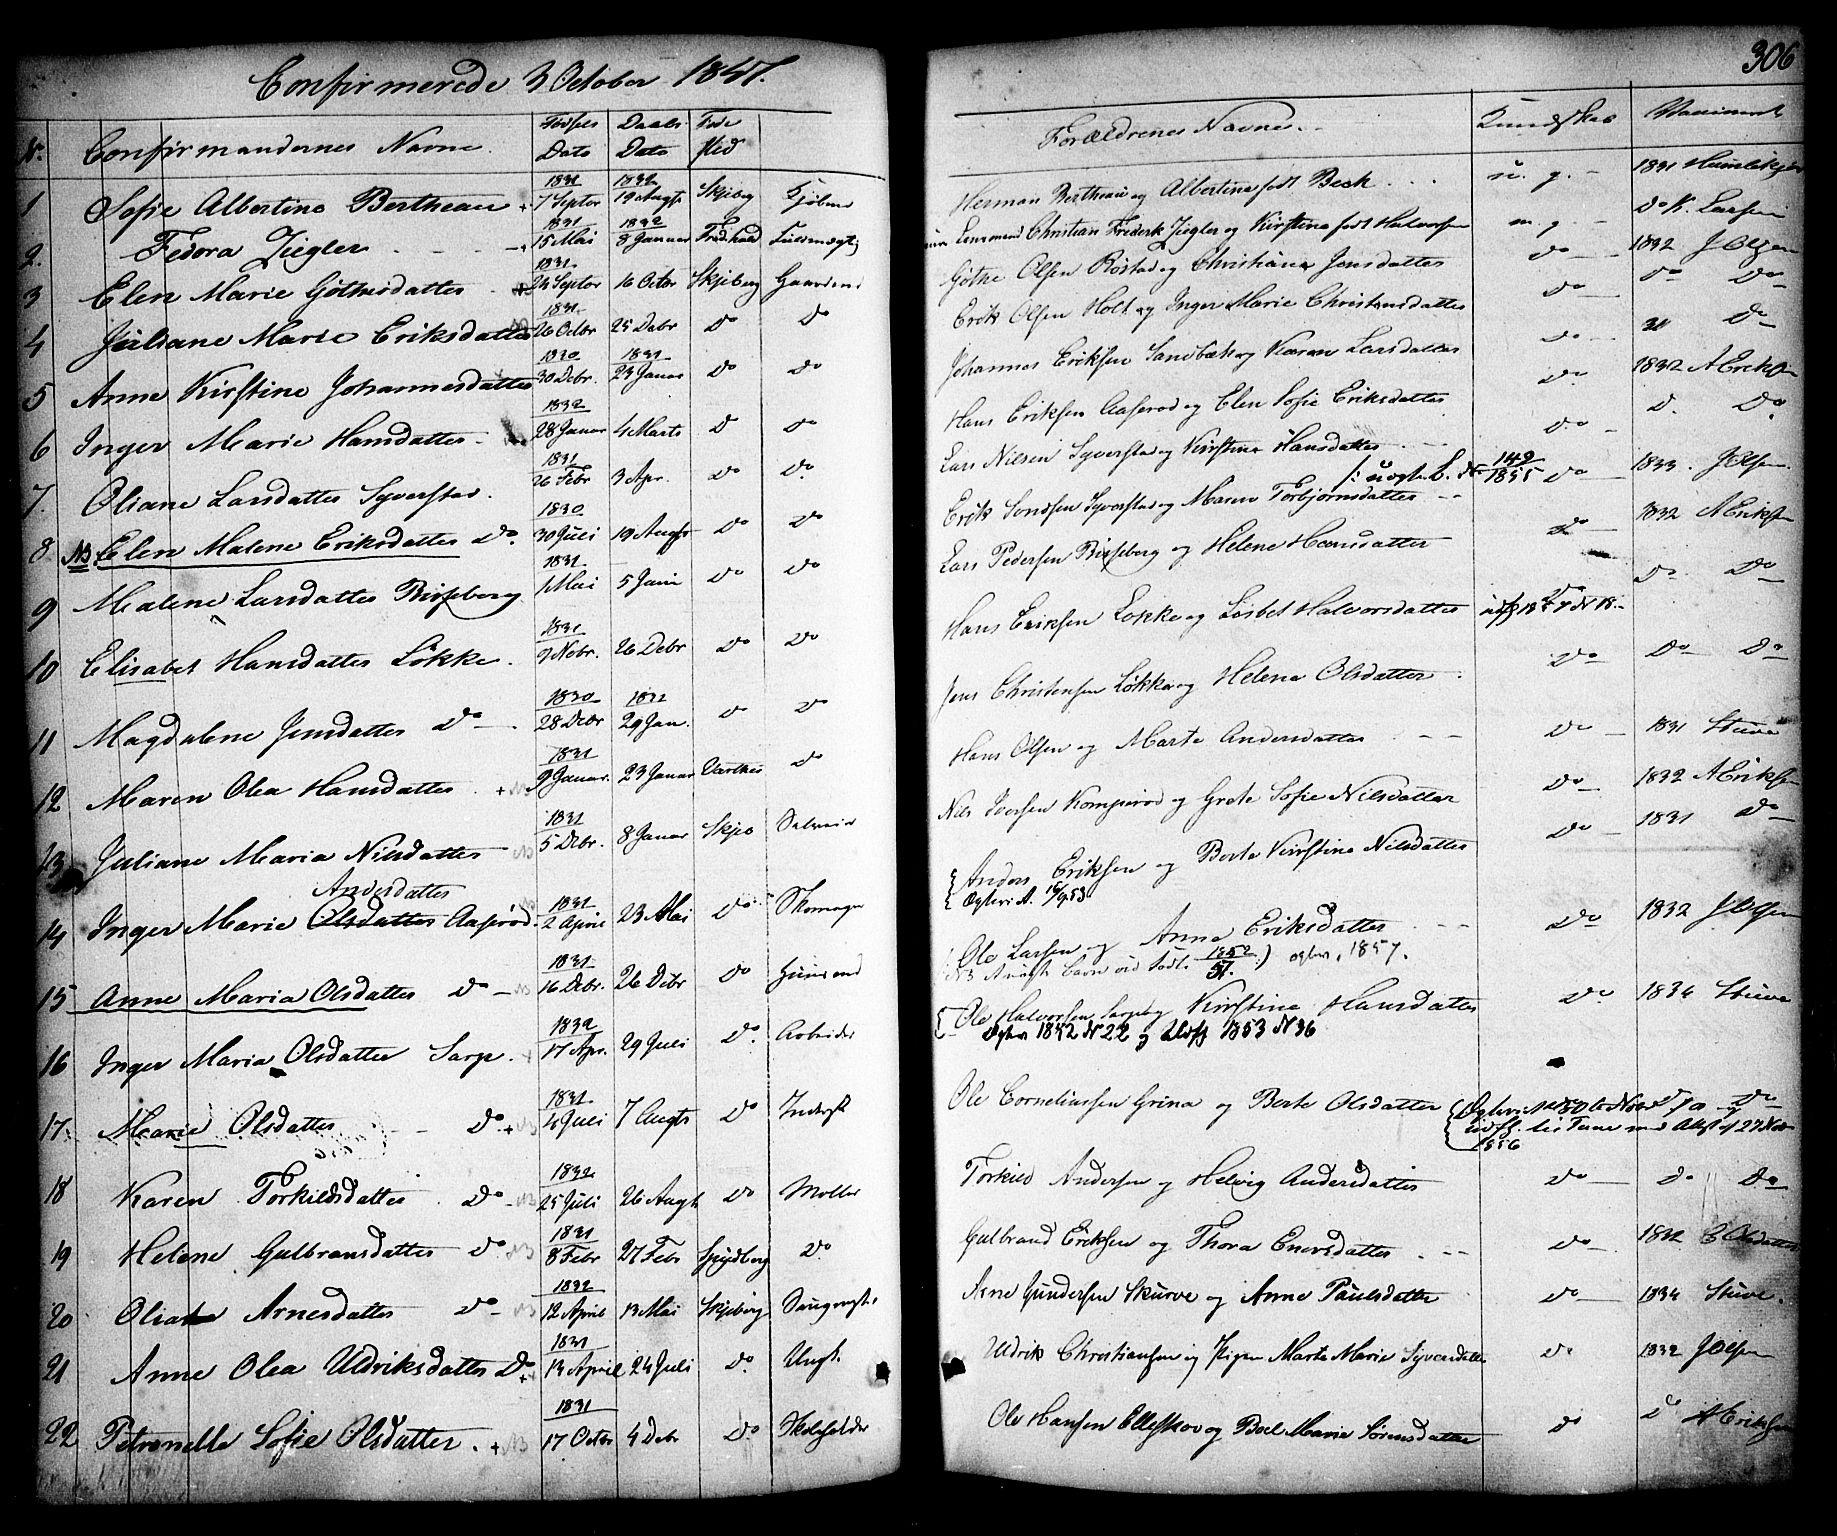 306
Confirmerede 3 October 1847.
No. Confirmandernes Navne. Fødsels Dato Daabs Dato Føde Sted Forældrenes Navne. Kundskab Vaccineret
1 Sofie Albertine Bertheau + 1831 7 Septbr 1832 19 Augst Skjeberg Herman Bertheau og Albertine født Beck u. g. 1831
2. Fedora Ziegler 1831 15 Mai 1832 8 Januar Fredhald Christian Frederk Ziegler og Kirstine født Halvorsen m. g. do K. Larsen
3 Elen Marie Göthesdatter 1831 24 Septbr 16 Octbr Skjeberg Gaardmd Göthe Olsen Röstad og Christiane Jensdatter do 1832 J Olsen
4 Juliane Marie Eriksdatter 1831 26 Octbr 25 Debr do do Erik Olsen Holt og Inger Marie Christensdatter do do do
5 Anne Kirstine Johannesdatter 1830 30 Debr. 1831 23 Januar do do Johannes Eriksen Sandbæk og Karen Larsdatter do 31 do
6 Inger Marie Hansdatter 1832 28 Januar 4 Marts do do Hans Eriksen Aaserød og Elen Sofie Eriksdatter do 1832 A Eriksen
7. Oliane Larsdatter Syverstad. 1831 26 Febr 3 Apr. do do Lars Nilsen Syverstad og Kirstine Hansdatter do do do
8 NB Elen Malene Eriksdatter do. 1830 30 Juli 19 Augst do do Erik Svendsen Syverstad og Maren Torbjörnsdatter 149/1855 do 1833. J Olsen
9 Malene Larsdatter Bisseberg 1831 1 Mai 5 Juni do do Lars Pedersen Bisseberg og Helene Hansdatter do 1832 A Eriksen
10 Elisabet Hansdatter Løkke. 1831 9 Nobr. 26 Debr do do Hans Eriksen Løkke og Lisbet Halvorsdatter do do do
11 Magdalene Jensdatter do 1830 28 Debr 1831 29 Jan. do do Jens Christensen Løkke og Helene Olsdatter do do do
12 Maren Olea Hansdatter + NB 1831 9 Januar. 23 Januar do Hans Olsen og Marte Andersdatter do 1831 Stuve
13 Juliane Maria Nilsdatter NB 1831 5 Debr. 8 Januar Skjeb Nils Iversen Kompperød og Grete Sofie Nilsdatter do 1832 A Eriksen
14 Inger Marie Olsdatter Andersdatter Aaserød. 1831 2 April 23 Mai do Skomager Anders Eriksen og Berte Kirstine Nilsdatter do 1831 do
15 Anne Maria Olsdatter do NB 1831 16 Debr. 26 Debr do Huusmd Ole Larsen og Anne Eriksdatter do 1832 J Olsen
1857.
16 Inger Maria Olsdatter Sarp. 1832 17 Apr. 29 Juli do. Arbeider Ole Halvorsen Sarp og Kirstine Hansdatter do 1834 Stuve
1852 N 22 og 1853 N 36
17. Marie Olsdatter do + NB 1831 4 Juli 7 Augts do Ole Corneliussen Grina og Berte Olsdatter do do
1856
18 Karen Torkildsdatter do NB 1832 25 Juli 26 Augt do Møller Torkild Andersen og Helvig Andersdatter do do do
19 Helene Gulbransdatter do NB 1831 8 Febr 27 Febr Spydberg do Gulbrand Eriksen og Thora Enersdatter do 1832
20 Oliane Arnesdatter do NB 1832 12 April 13 Mai Skjeberg Arne Gundersen Skurve og Anne Paulsdatter do 1834 Stuve.
21 Anne Olea Uldriksdatter do + 1831 13 April 24 Juli do. Ungk. Uldrik Christiansen og Pigen Marte Marie Syversdatter do 1832 J Olsen
22 Petronelle Sofie Olsdatter. + NB 1831 17 Octbr 4 Debr do. Skoleholder Ole Hansen Elleskov og Boel Maria Sörensdatter do do A Eriksen